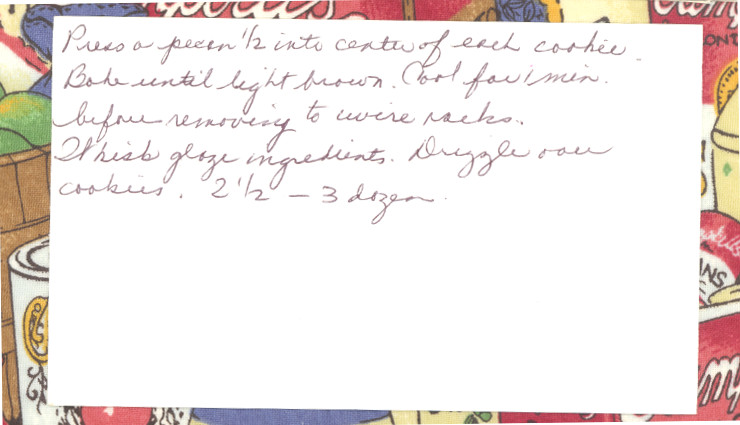 Press a pecan 1/2 into center of each cookie.
Bake until light brown. Cool for 1 min.
before removing to wire racks.
Whisk glaze ingredients. Drizzle over
cookies. 2 1/2 – 3 dozen.